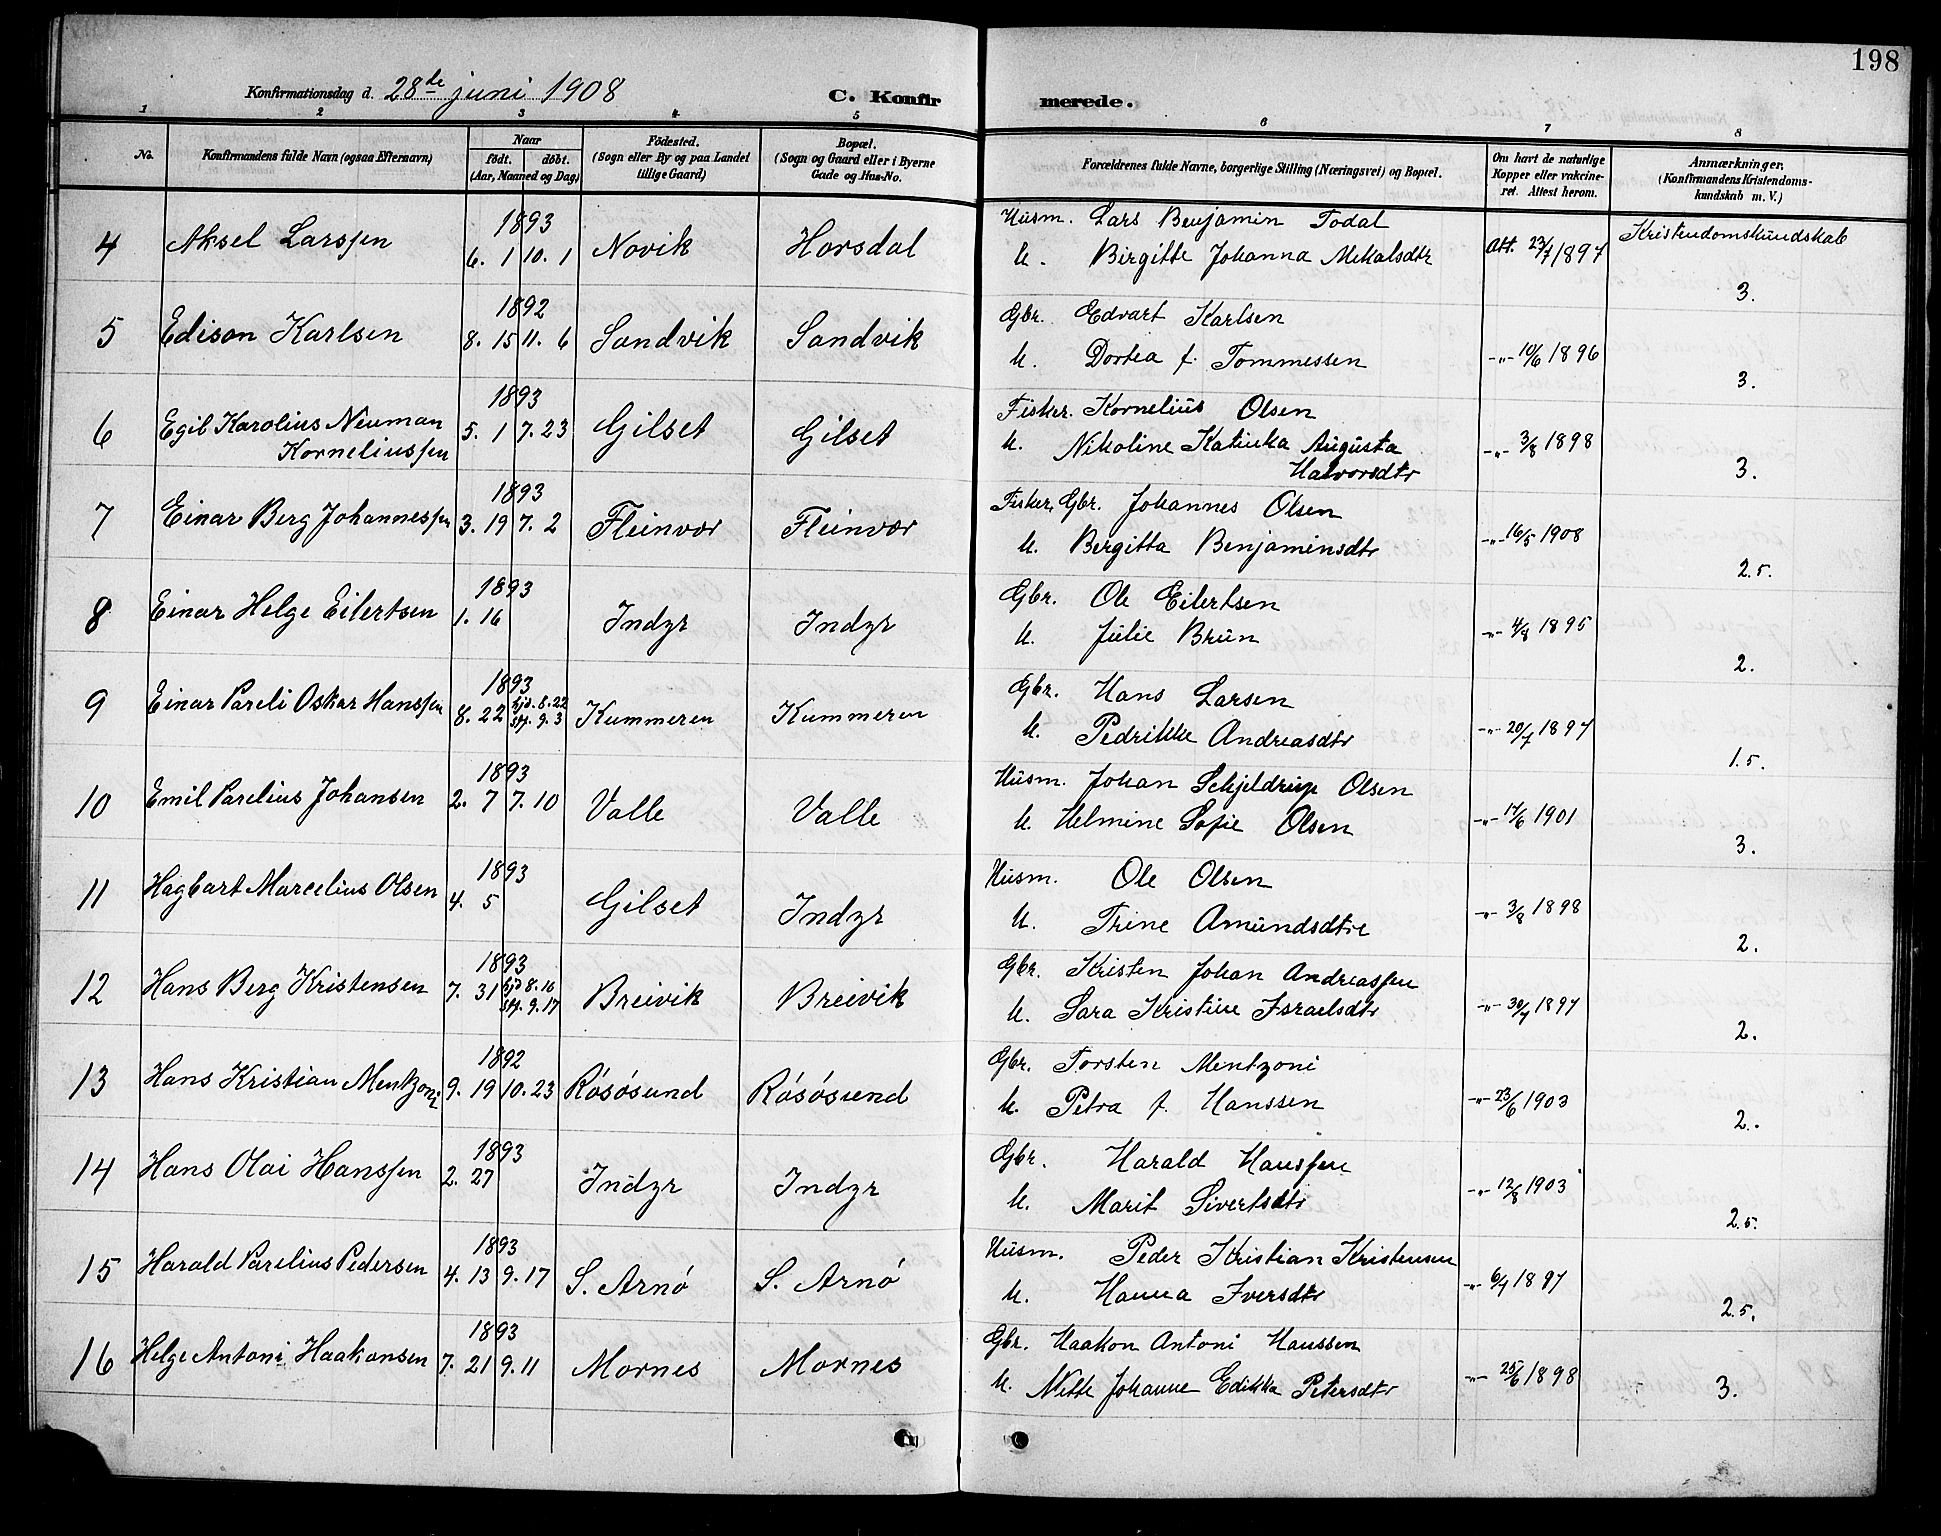 198
Konfirmationsdag d. 28de juni 1908
C. Konfirmerede.
1 2 3 4 5 6 7 8
No.
Konfirmandens fulde Navn (ogsaa Efternavn)
Naar
födt. döbt.
(Aar, Maaned og Dag)
Födested.
(Sogn eller By og paa Landet
tillige Gaard)
Bopæl.
(Sogn og Gaard eller i Byerne
Gade og Hus-No.
Forældrenes fulde Navne, borgerlige Stilling (Næringsvei) og Bopæl.
Om havt de naturlige
Kopper eller vakcine-
ret. Attest herom.
Anmærkninger.
(Konfirmandens Kristendoms-
kundskab m. V.)
1893 Husm. Lars Benjamin Todal Kristendomskundskab
4 Aksel Larssen 6. 1 10. 1 Novik Horsdal
u. Birgitte Johanna Mikalsdtr Att. 23/7 1897 3.
1892 Gbr. Edvart Karlsen
5 Edison Karlsen 8. 15 11. 6 Sandvik Sandvik
u. Dortea f. Tommessen -"- 10/6 1896 3.
1893 Fisker. Kornelius Olsen
6 Egil Karolius Neuman 5. 1 7. 23 Gilset Gilset
Korneliussen
u. Nikoline Katinka Augusta -"- 3/8 1898
Halvorsdtr 3.
1893 Fisker, Gbr. Johannes Olsen
7 Einar Berg Johannessen 3. 19 7. 2 Fleinvær Fleinvær
u. Bergitta Benjaminsdtr -"- 16/5 1908 2.5.
1893 Gbr. Ole Eilertsen
8 Einar Helge Eilertsen 1. 16 Indyr Indyr
u. Julie Brun -"- 4/8 1895 2.
1893 Gbr. Hans Larsen
9 Einar Pareli Oskar Hanssen 8. 22 hjd. 8. 22 Kummeren Kummeren
stf. 9. 3
u. Pedrikke Andreasdtr -"- 20/7 1897 1.5.
1893 Husm. Johan Schjeldrup Olsen
10 Emil Parelius Johansen 2. 7 7. 10 Valle Valle
u. Helmine Sofie Olsen -"- 17/6 1901 3.
1893 Husm. Ole Olsen
11 Hagbart Marcelius Olsen 4. 5 Gilset Indyr
u. Trine Amundsdtr -"- 3/8 1898 2.
1893 Gbr. Kristen Johan Andreassen
12 Hans Berg Kristensen 7. 31 hjd 8. 16 Breivik Breivik
stf. 9. 17
u. Sara Kristine Israelsdtr -"- 30/7 1897 2.
1892 Gbr. Torsten Mentzoni
13 Hans Kristian Mentzoni 9. 19 10. 23 Røsøsund Røsøsund
u. Petra f. Hanssen -"- 23/6 1903 2.
1893 Gbr. Harald Hanssen
14 Hans Olai Hanssen 2. 27 Indyr Indyr
u. Marit Sivertsdtr -"- 12/8 1903 2.5.
1893 Husm. Peder Kristian Kristensen
15 Harald Parelius Pedersen 4. 13 9. 17 S. Arnø S. Arnø
u. Hanna Iversdtr -"- 6/7 1897 2.5.
1893 Gbr. Haakon Antoni Hanssen
16 Helge Antoni Haakonsen 7. 21 9. 11 Mornes Mornes
u. Nette Johanne Edikka Petersdtr -"- 25/6 1898 3.